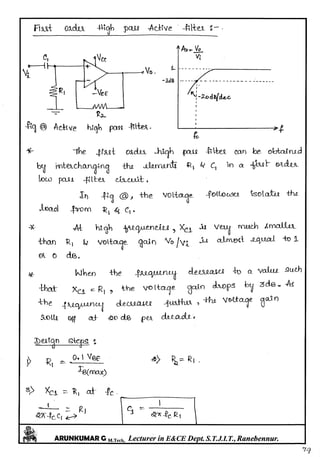 First order High pass Active filter :-
C₁
Vcc
Vi
Vo.
R₁
-VEE
R₂
Av = Vo/Vi
1
-3dB
-20db/dec
fc
f
fig @ Active high pass filter.
* The first order high pass filter can be obtained
by interchanging the elements R₁ & C₁ in a first order
low pass filter circuit.
In fig @, the voltage follower isolates the
load from R₁ & C₁.
* At high frequencies, Xc1 is very much smaller
than R₁ & voltage gain Vo/Vi is almost equal to 1
or 0 dB.
* When the frequency decreases to a value such
that Xc1 = R₁, the voltage gain drops by 3dB. As
the frequency decreases further, the voltage gain
rolls off at 20 dB per decade.
Design steps :
1) R₁ = 0.1 VBE / IB(max)
2) R₂ = R₁.
3) Xc1 = R₁ at fc.
1/2π fc C₁ = R₁
C₁ = 1/2π fc R₁
ARUNKUMAR G M.Tech, Lecturer in E&CE Dept. S.T.J.I.T., Ranebennur.
79